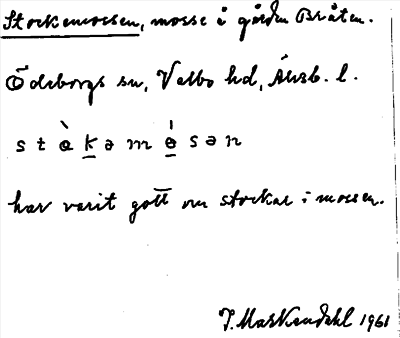 Stockemossen, mosse å gården Bråten.
Ödeborgs sn, Valbo hd, Älvsb. l.
s t ò̱ ḵ ə m ó̱ s ə n
har varit gott om stockar i mossen.
J. Markendahl 1961